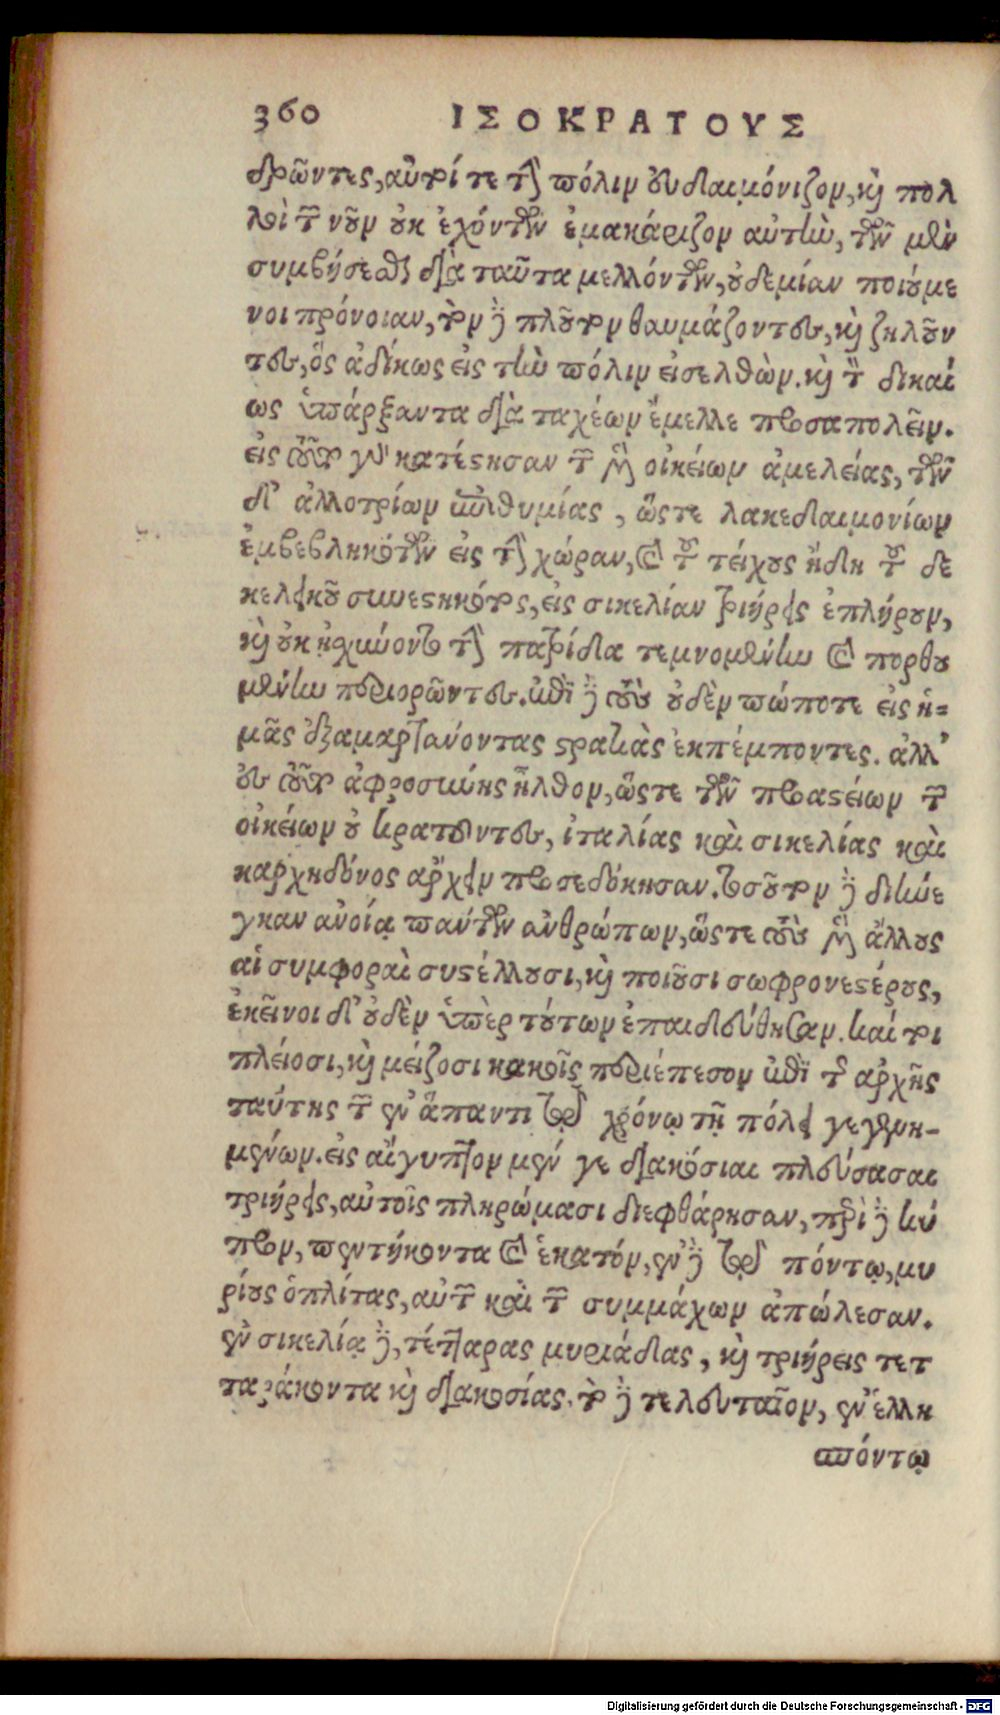 360 ΙΣΟΚΡΑΤΟΥΣ
δρῶντες, αὐτοί τε τὴν πόλιν εὐδαιμόνιζον, καὶ πολ
λοὶ τῶν νοῦν οὐκ ἐχόντων ἐμακάριζον αὐτὴν, τῶν μὲν
συμβήσεσθαι διὰ ταῦτα μελλόντων, οὐδεμίαν ποιούμε
νοι πρόνοιαν, τὸν δὲ πλοῦτον θαυμάζοντες, καὶ ζηλοῦν
τες, ὃς ἀδίκως εἰς τὴν πόλιν εἰσελθὼν. καὶ τὸν δικαί
ως ὑπάρξαντα διὰ ταχέων ἔμελλε προσαπολεῖν.
εἰς τοῦτο γὰρ κατέστησαν τῶν μὲν οἰκείων ἀμελείας, τῶν
δ' ἀλλοτρίων ἐπιθυμίας, ὥστε λακεδαιμονίων
ἐμβεβληκότων εἰς τὴν χώραν, καὶ τοῦ τείχους ἤδη τοῦ δε
κελειοῦ συνεστηκότος, εἰς σικελίαν τριήρεις ἐπλήρουν,
καὶ οὐκ ᾐσχύοντο τὴν πατρίδα τεμνομένην καὶ πορθου
μένην περιορῶντες. ἐπὶ δὲ τοὺς οὐδὲν πώποτε εἰς ἡ-
μᾶς ἐξαμαρτανόντας στρατιὰς ἐκπέμποντες. ἀλλ'
εἰς τοῦτο ἀφροσύνης ἦλθον, ὥστε τῶν προαστείων τῶν
οἰκείων οὐ κρατοῦντες, ἰταλίας καὶ σικελίας καὶ
καρχηδόνος ἄρχειν προσεδόκησαν. τοσοῦτον δὲ διήνε
γκαν ἀνοίᾳ πάντων ἀνθρώπων, ὥστε τοὺς μὲν ἄλλους
αἱ συμφοραὶ συστέλλουσι, καὶ ποιοῦσι σωφρονεστέρους,
ἐκεῖνοι δ' οὐδὲν ὑπὲρ τούτων ἐπαιδεύθησαν. καί τοι
πλείοσι, καὶ μείζοσι κακοῖς περιέπεσον ἐπὶ τῆς ἀρχῆς
ταύτης τῶν ἐν ἅπαντι τῷ χρόνῳ τῇ πόλει γεγενη-
μένων. εἰς αἴγυπτον μέν γε διακόσιαι πλεύσασαι
τριήρεις, αὐτοῖς πληρώμασι διεφθάρησαν, περὶ δὲ κύ
προν, πεντήκοντα καὶ ἑκατόν, ἐν δὲ τῷ πόντῳ, μυ
ρίους ὁπλίτας, αὐτῶν καὶ τῶν συμμάχων ἀπώλεσαν.
ἐν σικελίᾳ δὲ, τέτταρας μυριάδας, καὶ τριήρεις τετ
ταράκοντα καὶ διακοσίας. τὸ δὲ τελευταῖον, ἐν ἑλλη
σπόντῳ
Digitalisierung gefördert durch die Deutsche Forschungsgemeinschaft - DFG